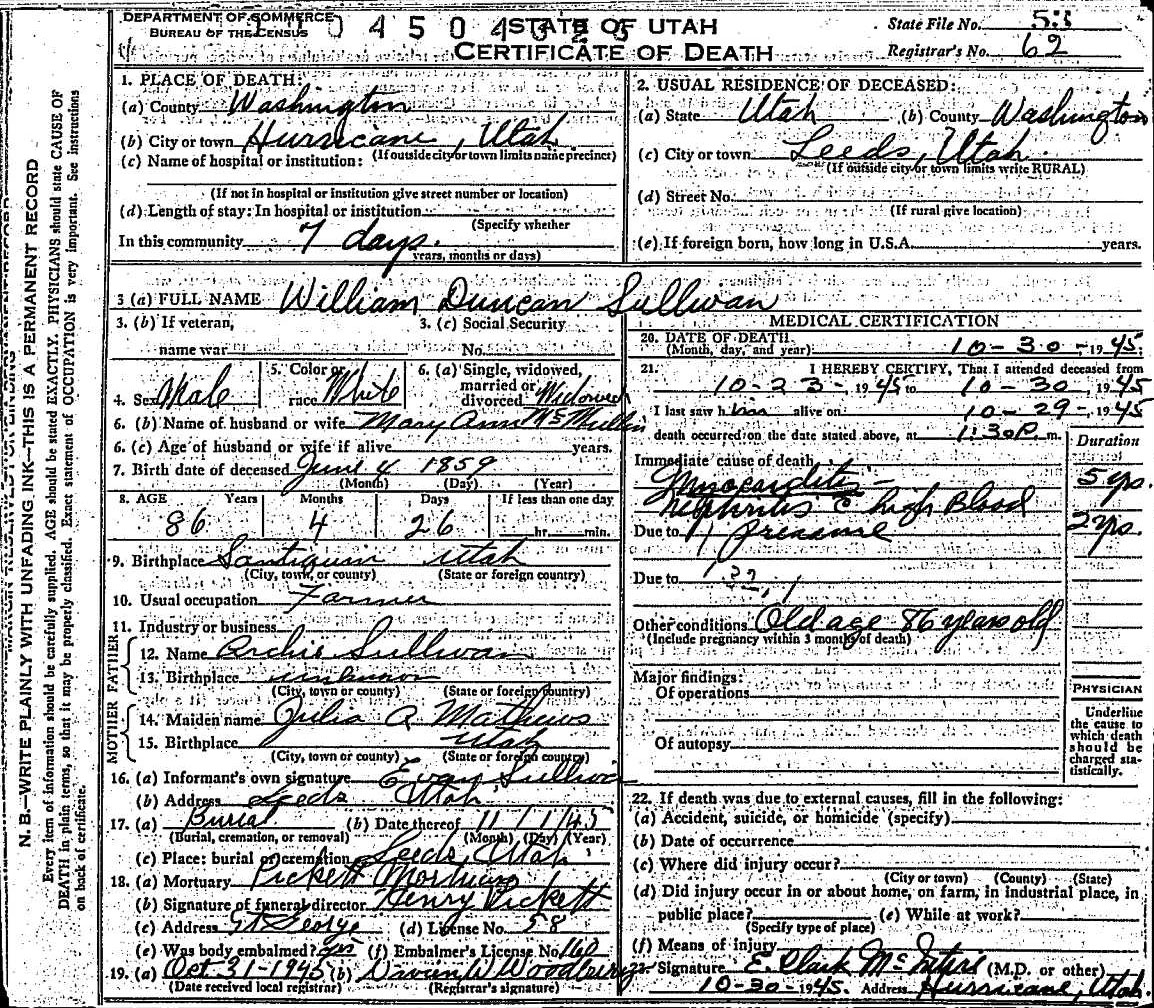 DEPARTMENT OF COMMERCE
BUREAU OF THE CENSUS
STATE OF UTAH
CERTIFICATE OF DEATH
State File No. 53
Registrar's No. 62
N.B.—WRITE PLAINLY WITH UNFADING INK—THIS IS A PERMANENT RECORD
Every item of information should be carefully supplied. AGE should be stated EXACTLY. PHYSICIANS should state CAUSE OF
DEATH in plain terms, so that it may be properly classified. Exact statement of OCCUPATION is very important. See instructions
on back of certificate.
1. PLACE OF DEATH:
(a) County Washington
(b) City or town Hurricane, Utah
(If outside city or town limits name precinct)
(c) Name of hospital or institution:
(If not in hospital or institution give street number or location)
(d) Length of stay: In hospital or institution
(Specify whether
In this community 7 days.
years, months or days)
2. USUAL RESIDENCE OF DECEASED:
(a) State Utah (b) County Washington
(c) City or town Leeds, Utah.
(If outside city or town limits write RURAL)
(d) Street No.
(If rural give location)
(e) If foreign born, how long in U.S.A. years.
3 (a) FULL NAME William Duncan Sullivan
3. (b) If veteran,
name war
3. (c) Social Security
No.
4. Sex Male
5. Color or
race White
6. (a) Single, widowed,
married or
divorced Widowed
6. (b) Name of husband or wife Mary Ann McMullin
6. (c) Age of husband or wife if alive years.
7. Birth date of deceased June 4 1859
(Month) (Day) (Year)
8. AGE Years Months Days If less than one day
86 4 26 hr. min.
9. Birthplace Santiquin Utah
(City, town, or county) (State or foreign country)
10. Usual occupation Farmer
11. Industry or business
FATHER
12. Name Archie Sullivan
13. Birthplace unknown
(City, town or county) (State or foreign country)
MOTHER
14. Maiden name Julia A Mathews
15. Birthplace Utah
(City, town or county) (State or foreign country)
16. (a) Informant's own signature Evan Sullivan
(b) Address Leeds Utah
17. (a) Burial (b) Date thereof 11/1/45
(Burial, cremation, or removal) (Month) (Day) (Year)
(c) Place: burial or cremation Leeds, Utah
18. (a) Mortuary Pickett Mortuary
(b) Signature of funeral director Henry Pickett
(c) Address St George (d) License No. 58
(e) Was body embalmed? yes (f) Embalmer's License No. 160
19. (a) Oct 31-1945 (b) Woodbury
(Date received local registrar) (Registrar's signature)
MEDICAL CERTIFICATION
20. DATE OF DEATH
(Month, day, and year) 10-30-, 1945.
21. I HEREBY CERTIFY, That I attended deceased from
10-23-, 1945 to 10-30, 1945
I last saw him alive on 10-29-, 1945
death occurred on the date stated above, at 1:30 P. m.
Duration
Immediate cause of death
Myocarditis- 5 yrs.
Nephritis c high Blood
Due to pressure 2 yrs.
Due to
Other conditions Old age 86 years old
(Include pregnancy within 3 months of death)
Major findings:
Of operations
Of autopsy
PHYSICIAN
Underline
the cause to
which death
should be
charged sta-
tistically.
22. If death was due to external causes, fill in the following:
(a) Accident, suicide, or homicide (specify)
(b) Date of occurrence
(c) Where did injury occur?
(City or town) (County) (State)
(d) Did injury occur in or about home, on farm, in industrial place, in
public place? (e) While at work?
(Specify type of place)
(f) Means of injury
23. Signature E. Clark McIntire (M.D. or other)
10-30-1945. Address Hurricane, Utah.